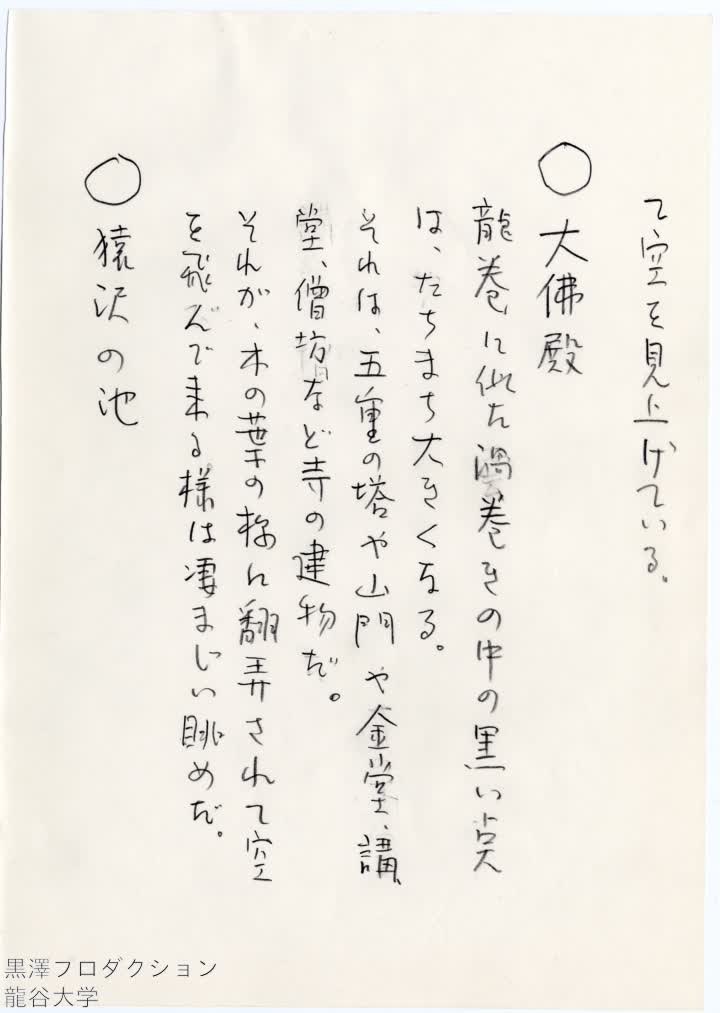 て空を見上げている。
○大佛殿
龍巻に似た渦巻きの中の黒い点
は、たちまち大きくなる。
それは、五重の塔や山門や金堂、講
堂、僧坊など寺の建物だ。
それが、木の葉の様に翻弄されて空
を飛んで来る様は凄まじい眺めだ。
○猿沢の池
黒澤プロダクション
龍谷大学